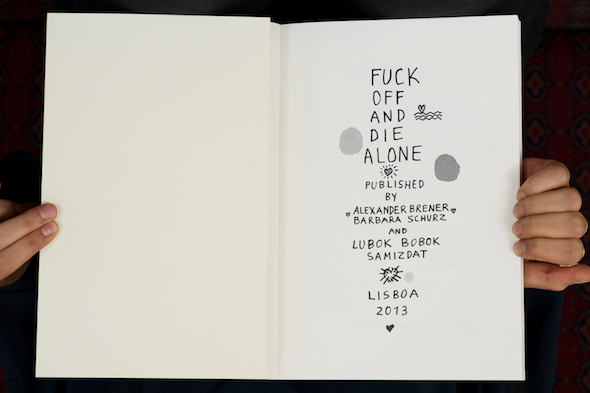 FUCK
OFF
AND
DIE
ALONE
PUBLISHED
BY
ALEXANDER BRENER
BARBARA SCHURZ
AND
LUBOK BOBOK
SAMIZDAT
LISBOA
2013